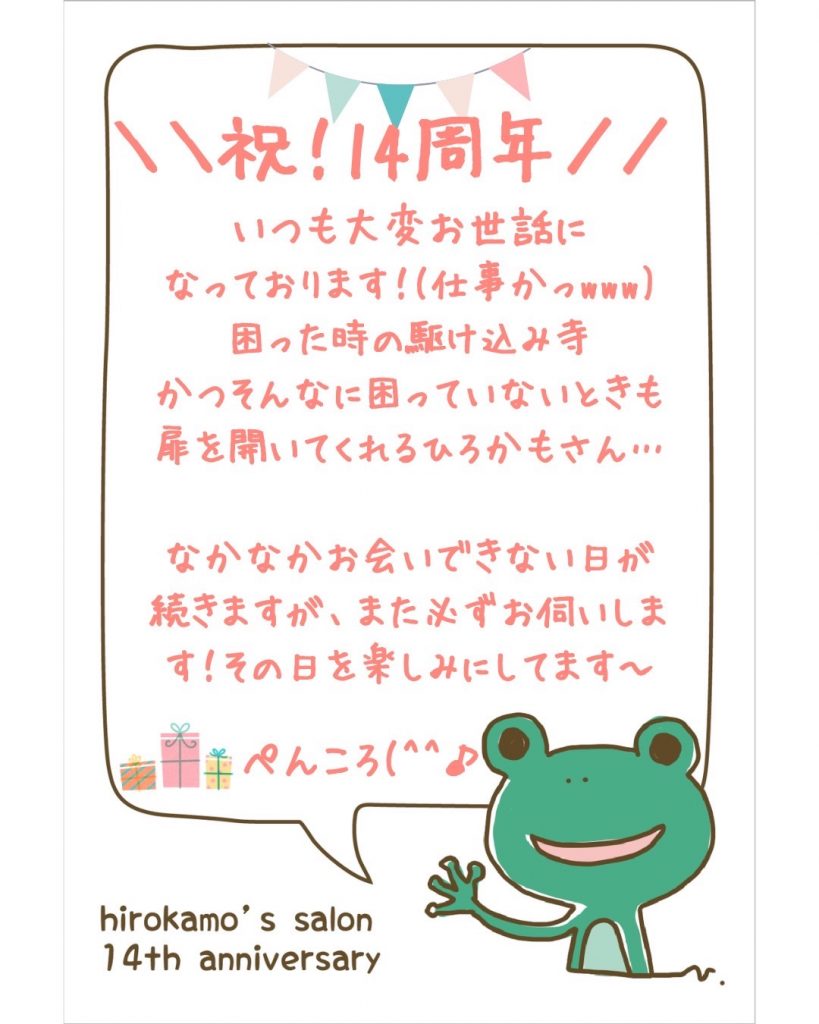 \\祝！14周年//
いつも大変お世話に
なっております！(仕事かっwww)
困った時の駆け込み寺
かつそんなに困っていないときも
扉を開いてくれるひろかもさん…
なかなかお会いできない日が
続きますが、また必ずお伺いしま
す！その日を楽しみにしてます～
ぺんころ(^^♪
hirokamo's salon
14th anniversary